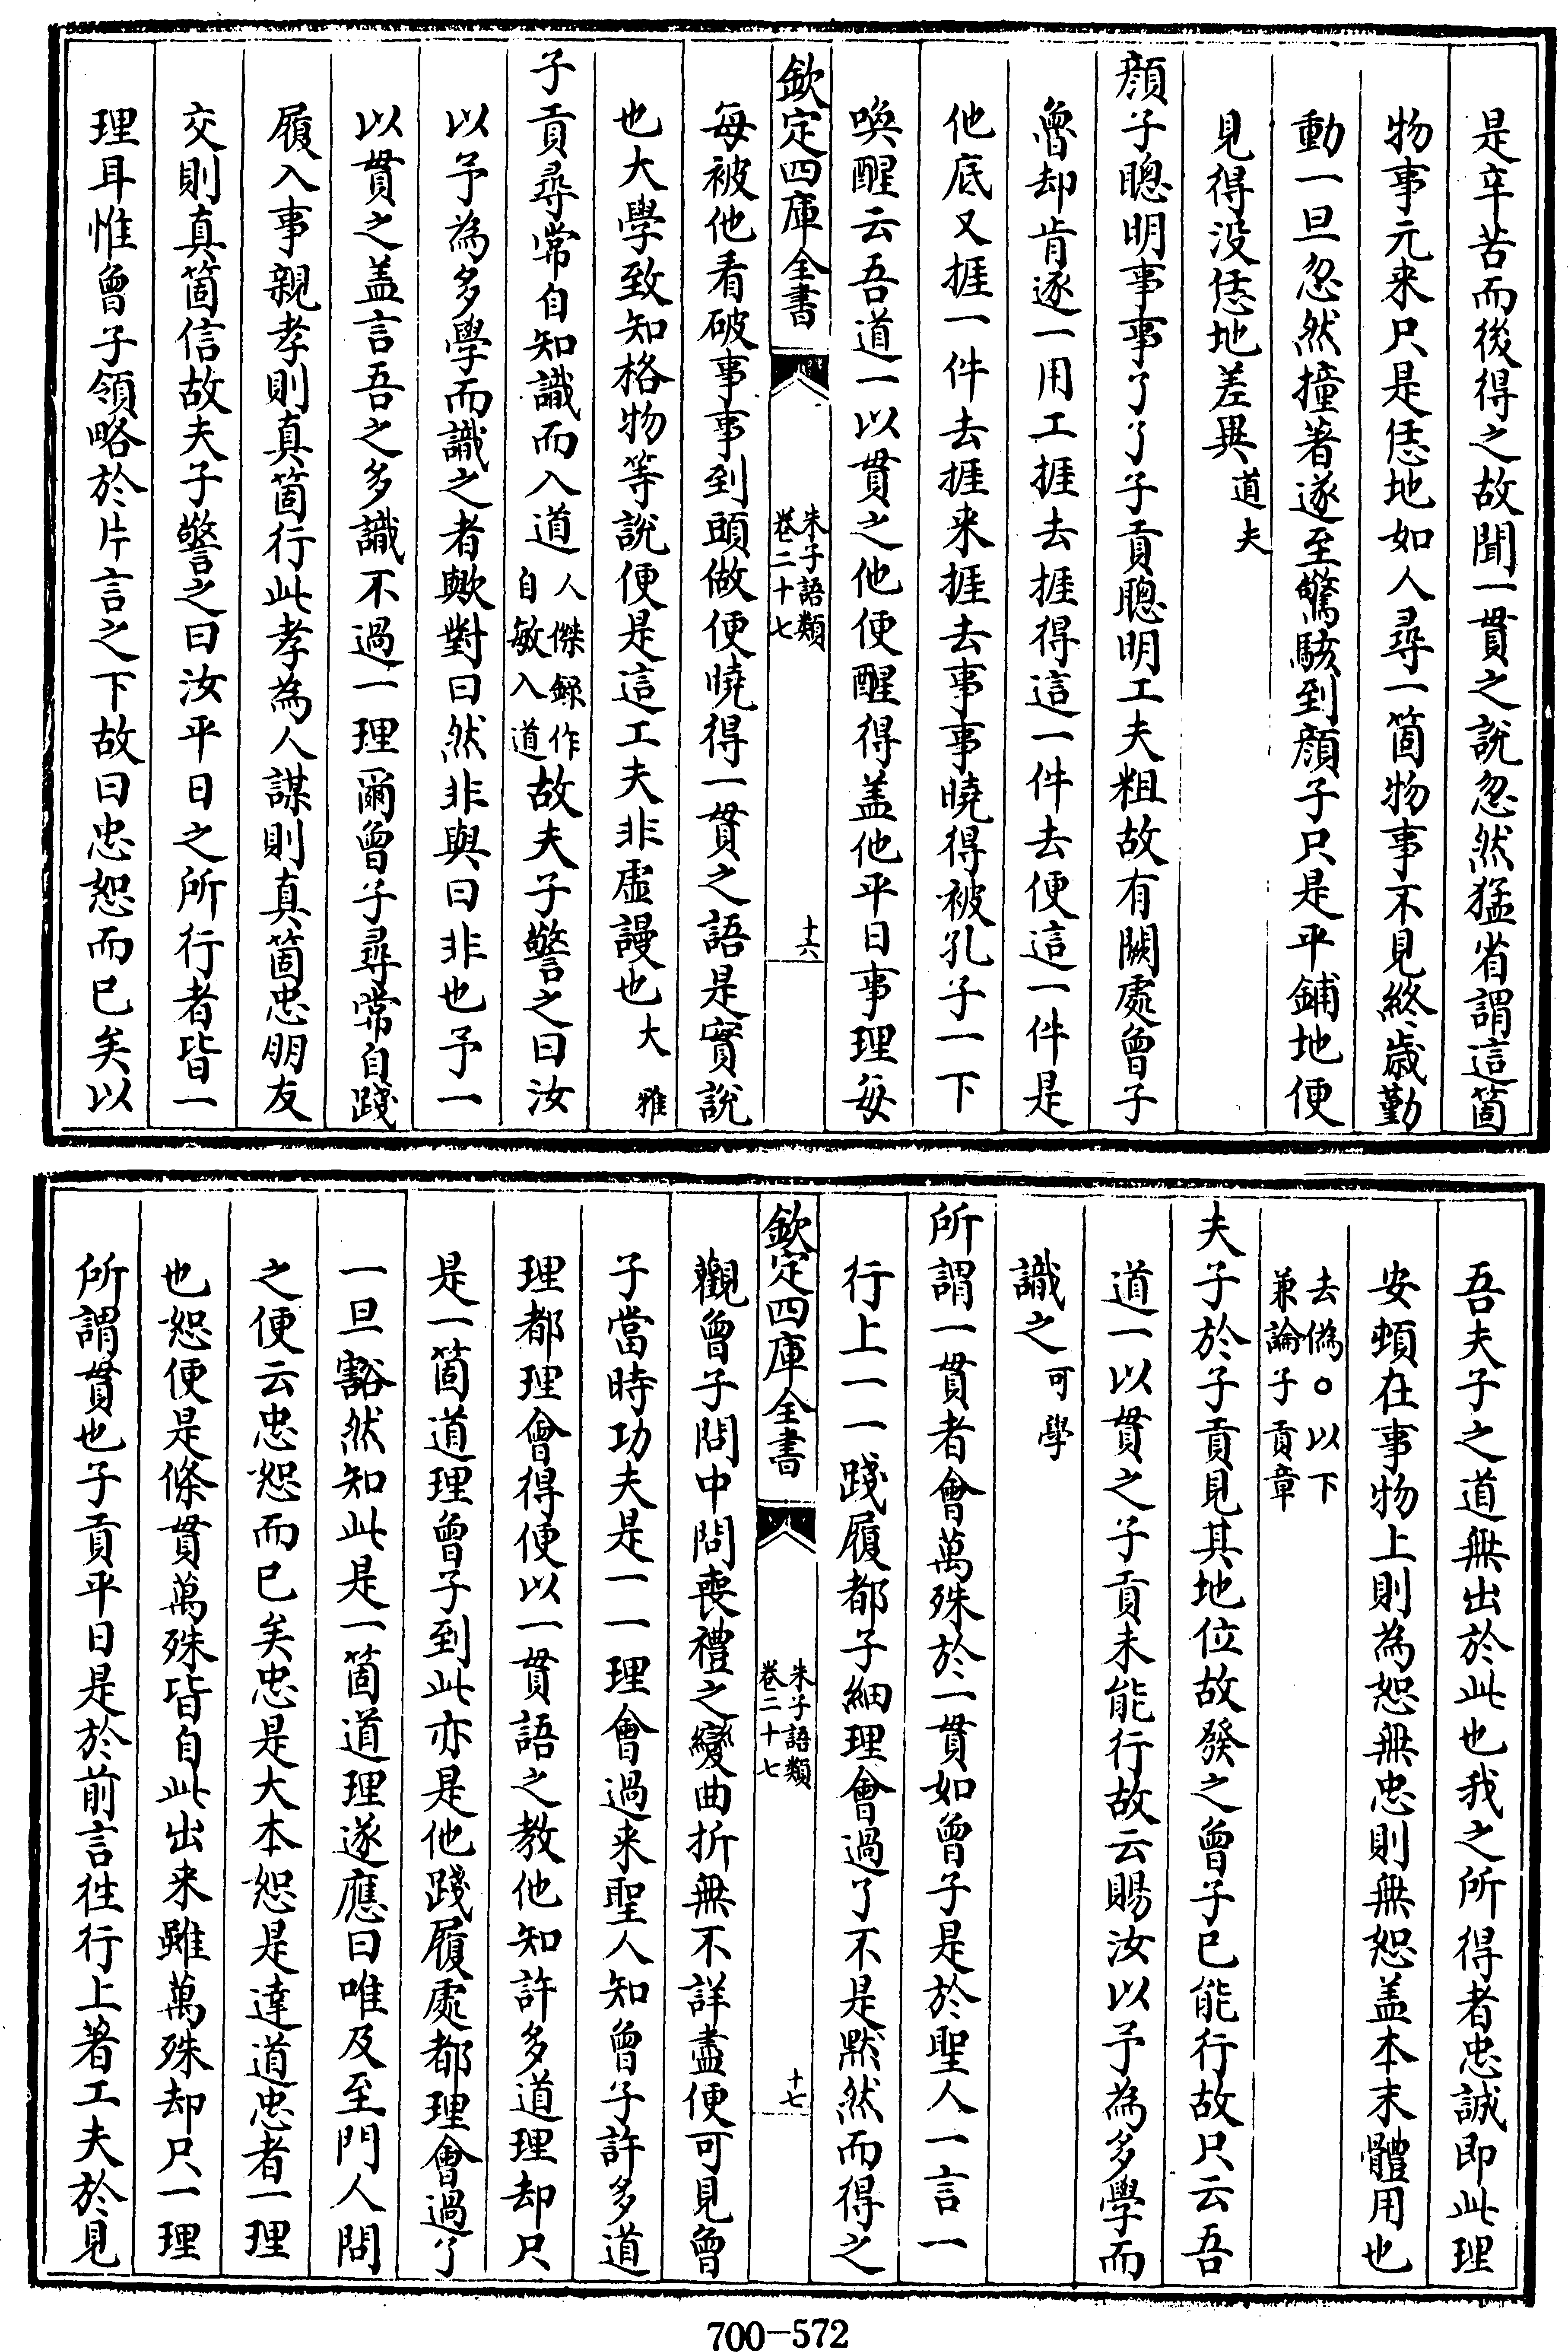 是辛苦而後得之故聞一貫之說忽然猛省謂這箇
物事元来只是恁地如人尋一箇物事不見終歲勤
動一旦忽然撞著遂至驚駭到顔子只是平鋪地便
見得没恁地差異道夫
顔子聰明事事了了子貢聰明工夫粗故有闕處曾子
魯却肯逐一用工捱去捱得這一件去便這一件是
他底又捱一件去捱来捱去事事曉得被孔子一下
喚醒云吾道一以貫之他便醒得盖他平日事理每
欽定四庫全書
朱子語類
卷二十七
十六
每被他看破事事到頭做便曉得一貫之語是實說
也大學致知格物等說便是這工夫非虛謾也大雅
子貢尋常自知識而入道人傑録作
自敏入道故夫子警之曰汝
以予為多學而識之者歟對曰然非與曰非也予一
以貫之盖言吾之多識不過一理爾曾子尋常自踐
履入事親孝則真箇行此孝為人謀則真箇忠朋友
交則真箇信故夫子警之曰汝平日之所行者皆一
理耳惟曾子領略於片言之下故曰忠恕而已矣以
吾夫子之道無出於此也我之所得者忠誠即此理
安頓在事物上則為恕無忠則無恕盖本末體用也
去偽○以下
兼論子貢章
夫子於子貢見其地位故發之曾子已能行故只云吾
道一以貫之子貢未能行故云賜汝以予為多學而
識之可學
所謂一貫者會萬殊於一貫如曾子是於聖人一言一
行上一一踐履都子細理會過了不是黙然而得之
欽定四庫全書
朱子語類
卷二十七
十七
觀曾子問中問喪禮之變曲折無不詳盡便可見曾
子當時功夫是一一理會過来聖人知曾子許多道
理都理會得便以一貫語之教他知許多道理却只
是一箇道理曾子到此亦是他踐履處都理會過了
一旦豁然知此是一箇道理遂應曰唯及至門人問
之便云忠恕而已矣忠是大本恕是達道忠者一理
也恕便是條貫萬殊皆自此出来雖萬殊却只一理
所謂貫也子貢平日是於前言徃行上著工夫於見
700-572